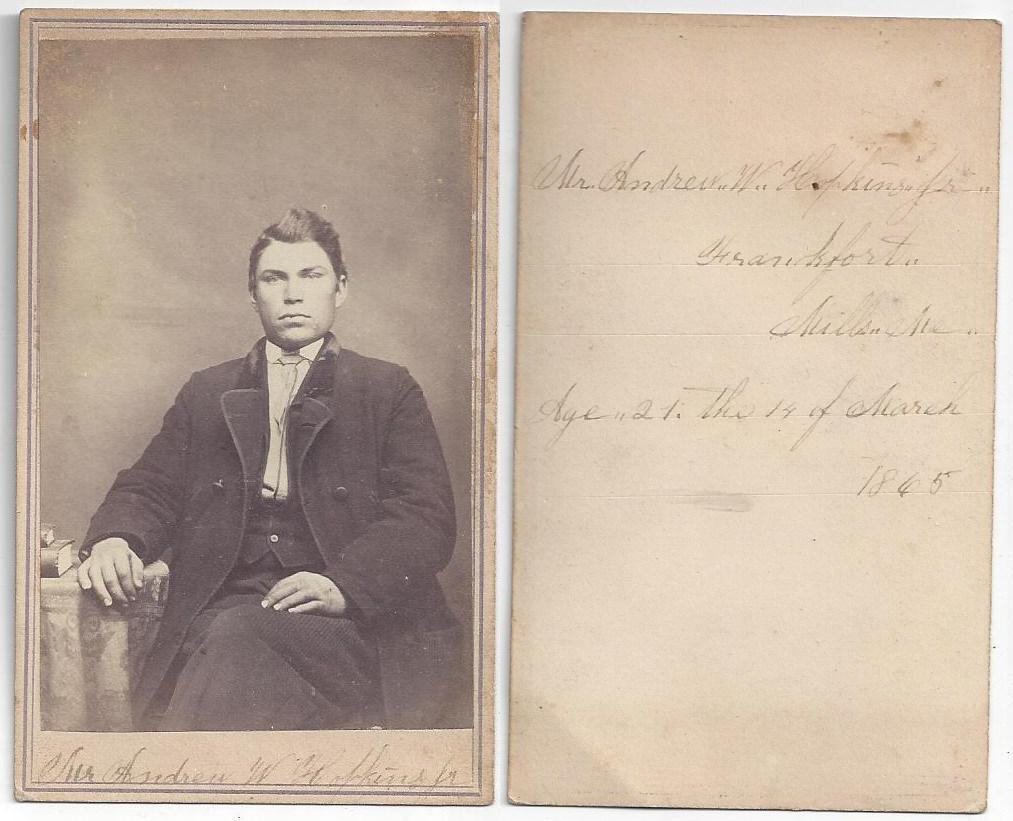 Mr Andrew W Hopkins Jr
Mr. Andrew.. W.. Hopkins.. Jr..
Frankfort..
Mills.. Me..
Age.. 21. the 14 of March
1865